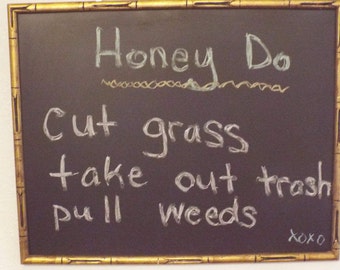 Honey Do
Cut grass
take out trash
pull weeds
xoxo